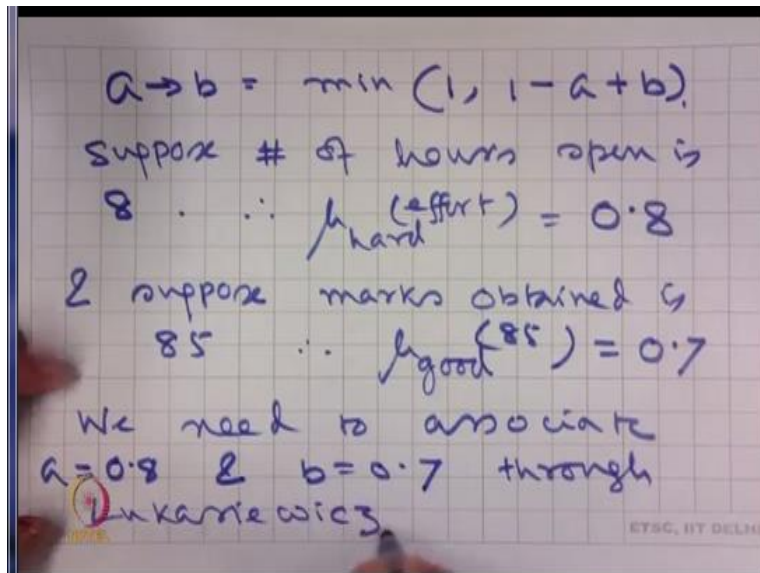 a → b = min (1, 1 - a + b).
Suppose # of hours spen is
8 . ∴ μhard (effort) = 0.8
& suppose marks obtained is
85 ∴ μgood (85) = 0.7
We need to associate
a = 0.8 & b = 0.7 through
Lukasiewicz
ETSC, IIT DELHI